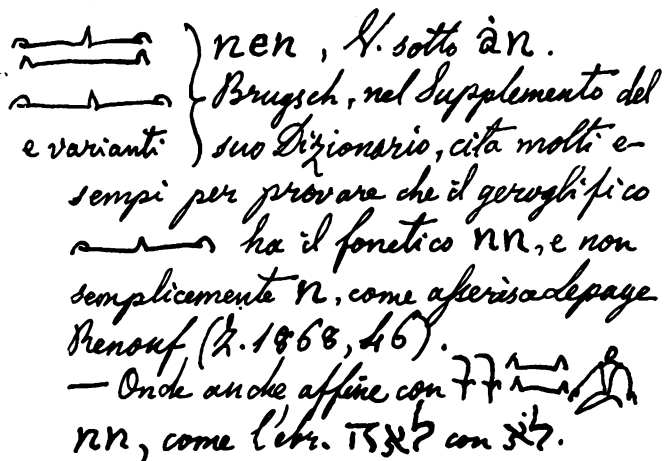 nen, V. sotto ȧn.
Brugsch, nel Supplemento del
e varianti suo Dizionario, cita molti e-
sempi per provare che il geroglifico
ha il fonetico nn, e non
semplicemente n, come asserisce Lepage
Renouf (Z. 1868, 46).
— Onde anche affine con
nn, come l'ebr. con